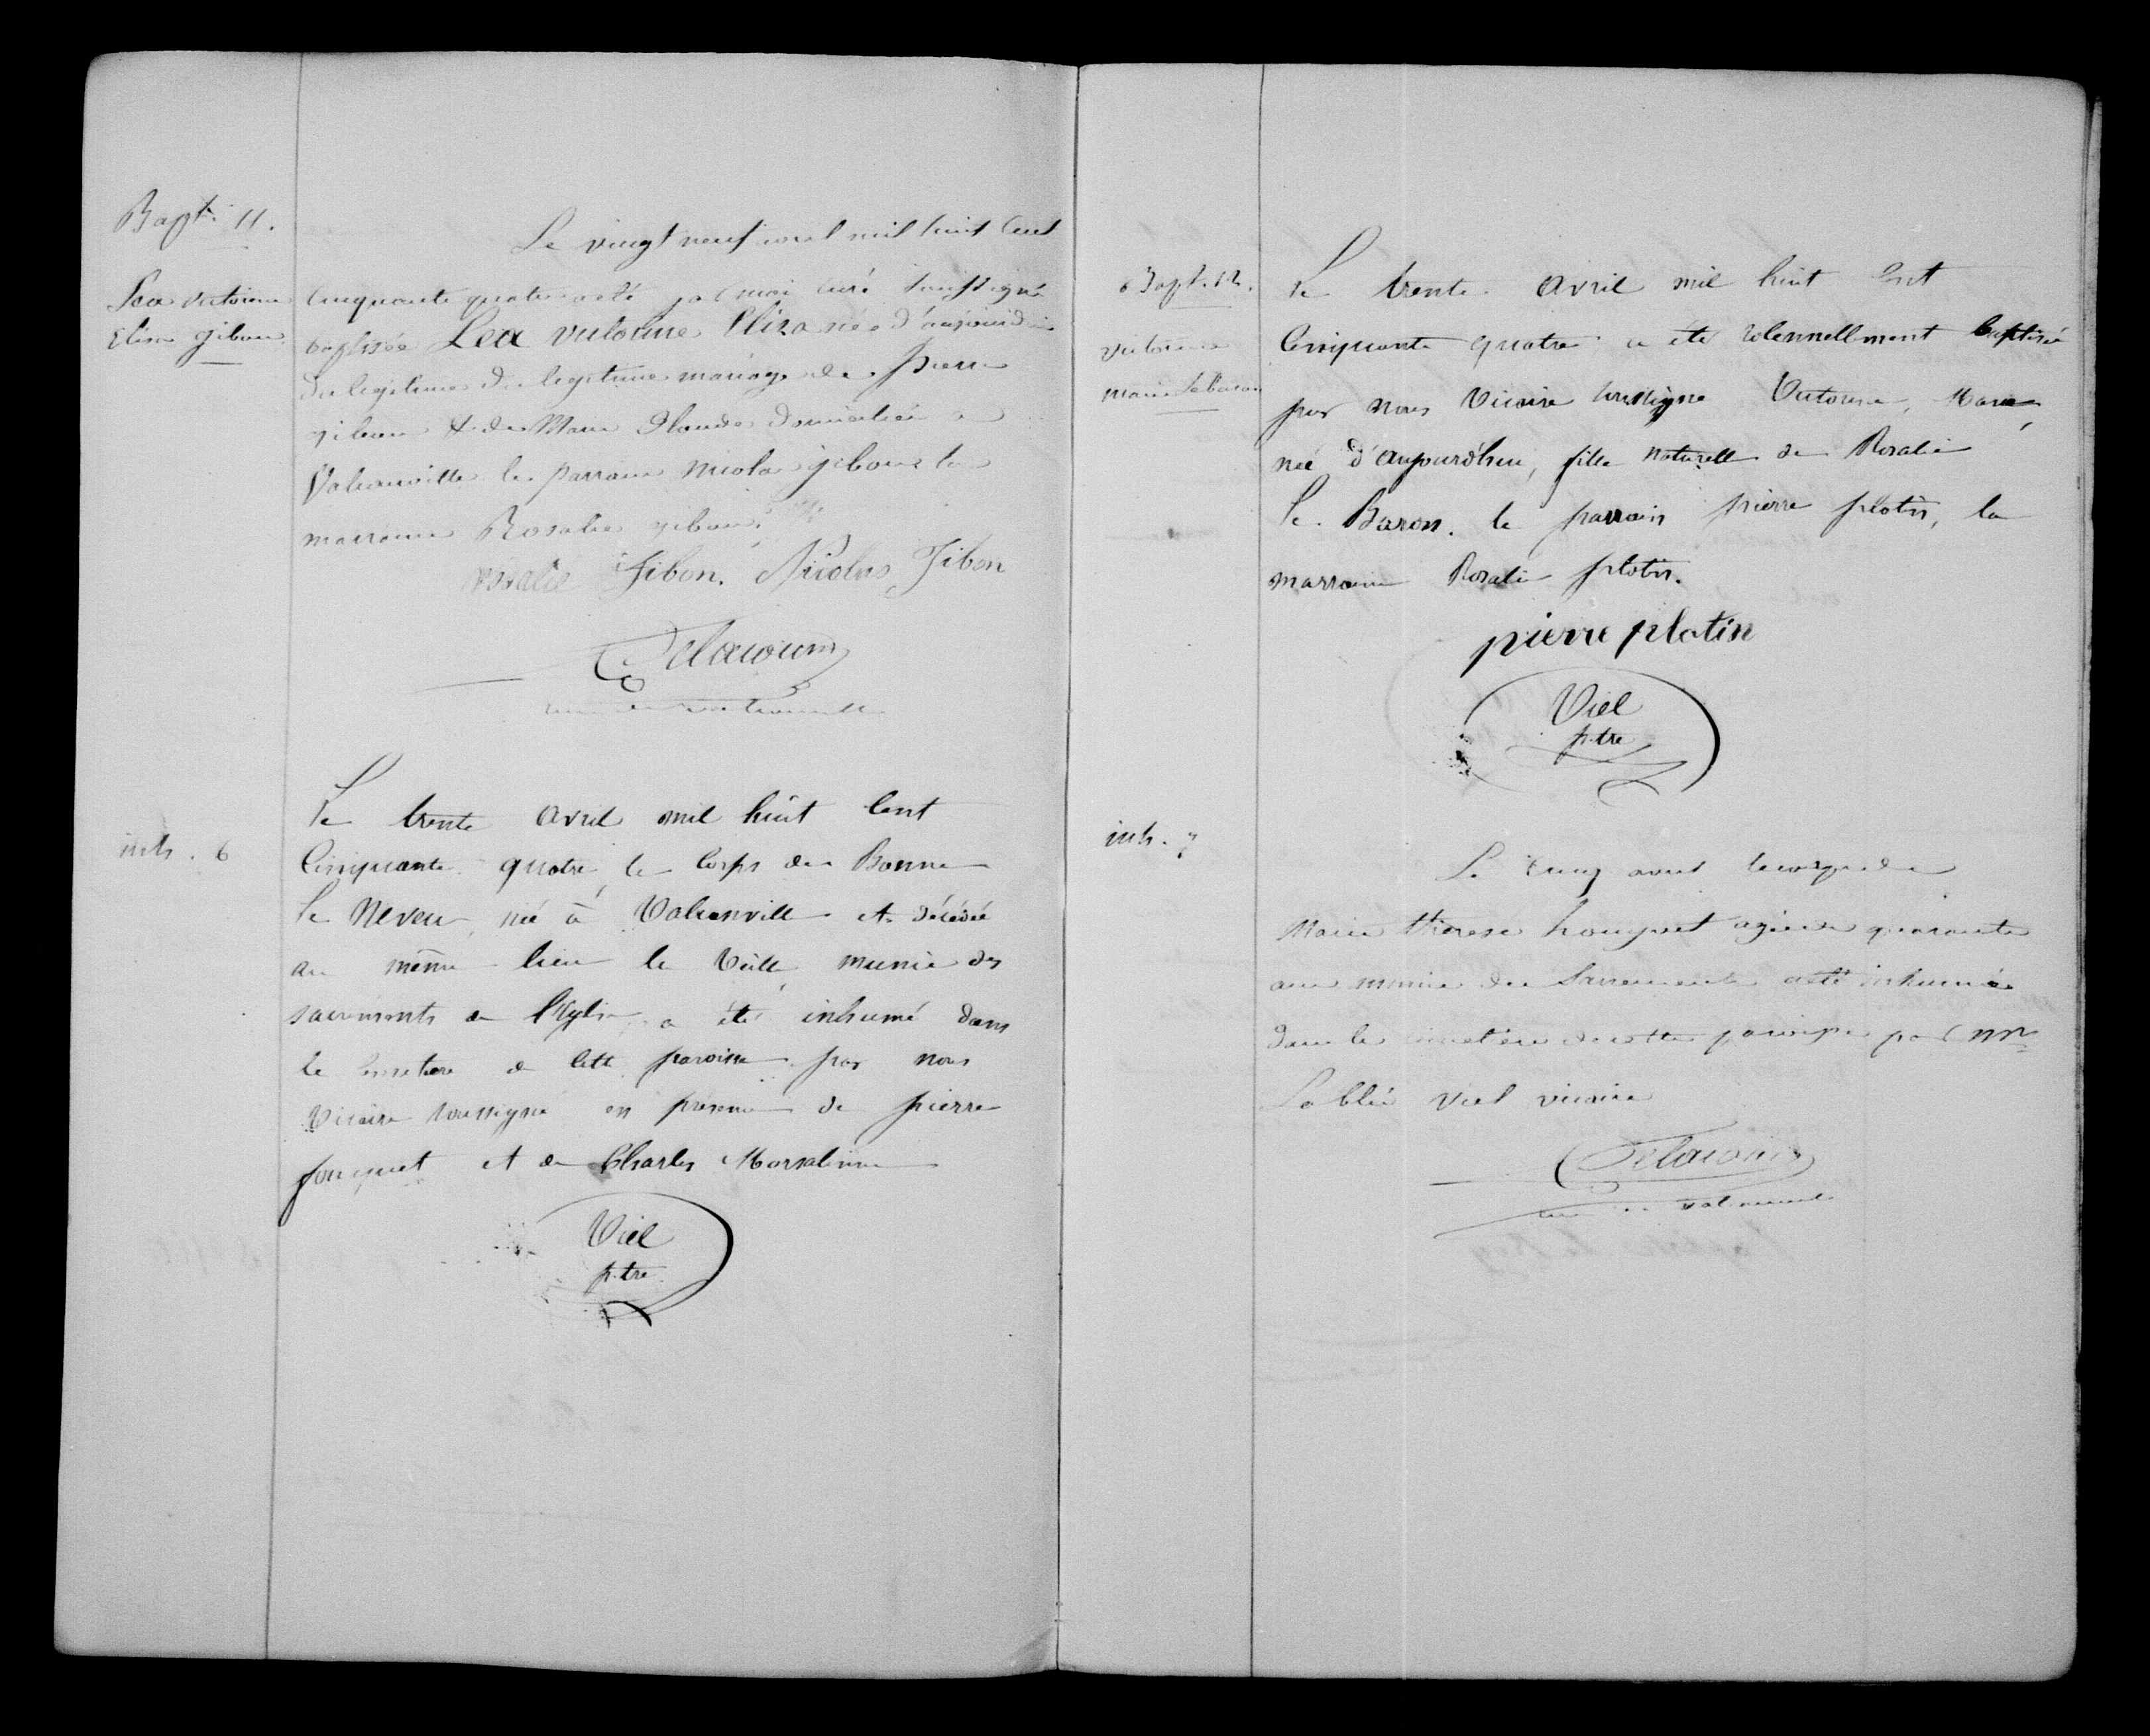 Bapt. 11.
Lea victorine
Elisa gibon
Le vingt neuf avril mil huit cent
cinquante quatre a été par moi curé soussigné
baptisée Lea victorine Eliza née d'aujourd'hui
du legitime mariage de Pierre
gibon & de Marie domiciliés a
Valcanville le parrain Nicolas gibon la
marraine Rosalie gibon.
rosalie Gibon. Nicolas Gibon
Delacour
curé de Valcanville
inh. 6
Le trente Avril mil huit Cent
Cinquante quatre, le Corps de Bonne
Le Neveu, née à Valcanville et décédée
au même lieu la Veille, munie des
sacrements de l'Eglise a été inhumé dans
le Cimetiere de Cette paroisse par nous
Vicaire soussigné en presence de pierre
fouquet et de Charles Marsalinne
Viel
ptre
Bapt. 12.
victorine
marie Le baron
Le trente Avril mil huit Cent
Cinquante quatre a été solennellement baptisée
par nous Vicaire soussigné Victorine, Marie,
née d'aujourd'hui, fille naturelle de Rosalie
Le Baron. le parrain pierre plotin, la
marraine Rosalie plotin.
pierre plotin
Viel
ptre
inh. 7
Le avril le corps de
Marie therese fouquet agée de quarante
ans munie des Sacrements a été inhumée
dans le cimetière de cette paroisse par Mr
L'abbé Viel vicaire
Delacour
curé de valcanville